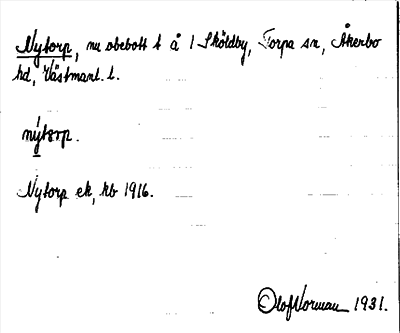 Nytorp, nu obebott t å 1 Sköldby, Torpa sn, Åkerbo
hd, Västmanl. l.
nýtorp.
Nytorp ek, kb 1916.
Olof Norman 1931.